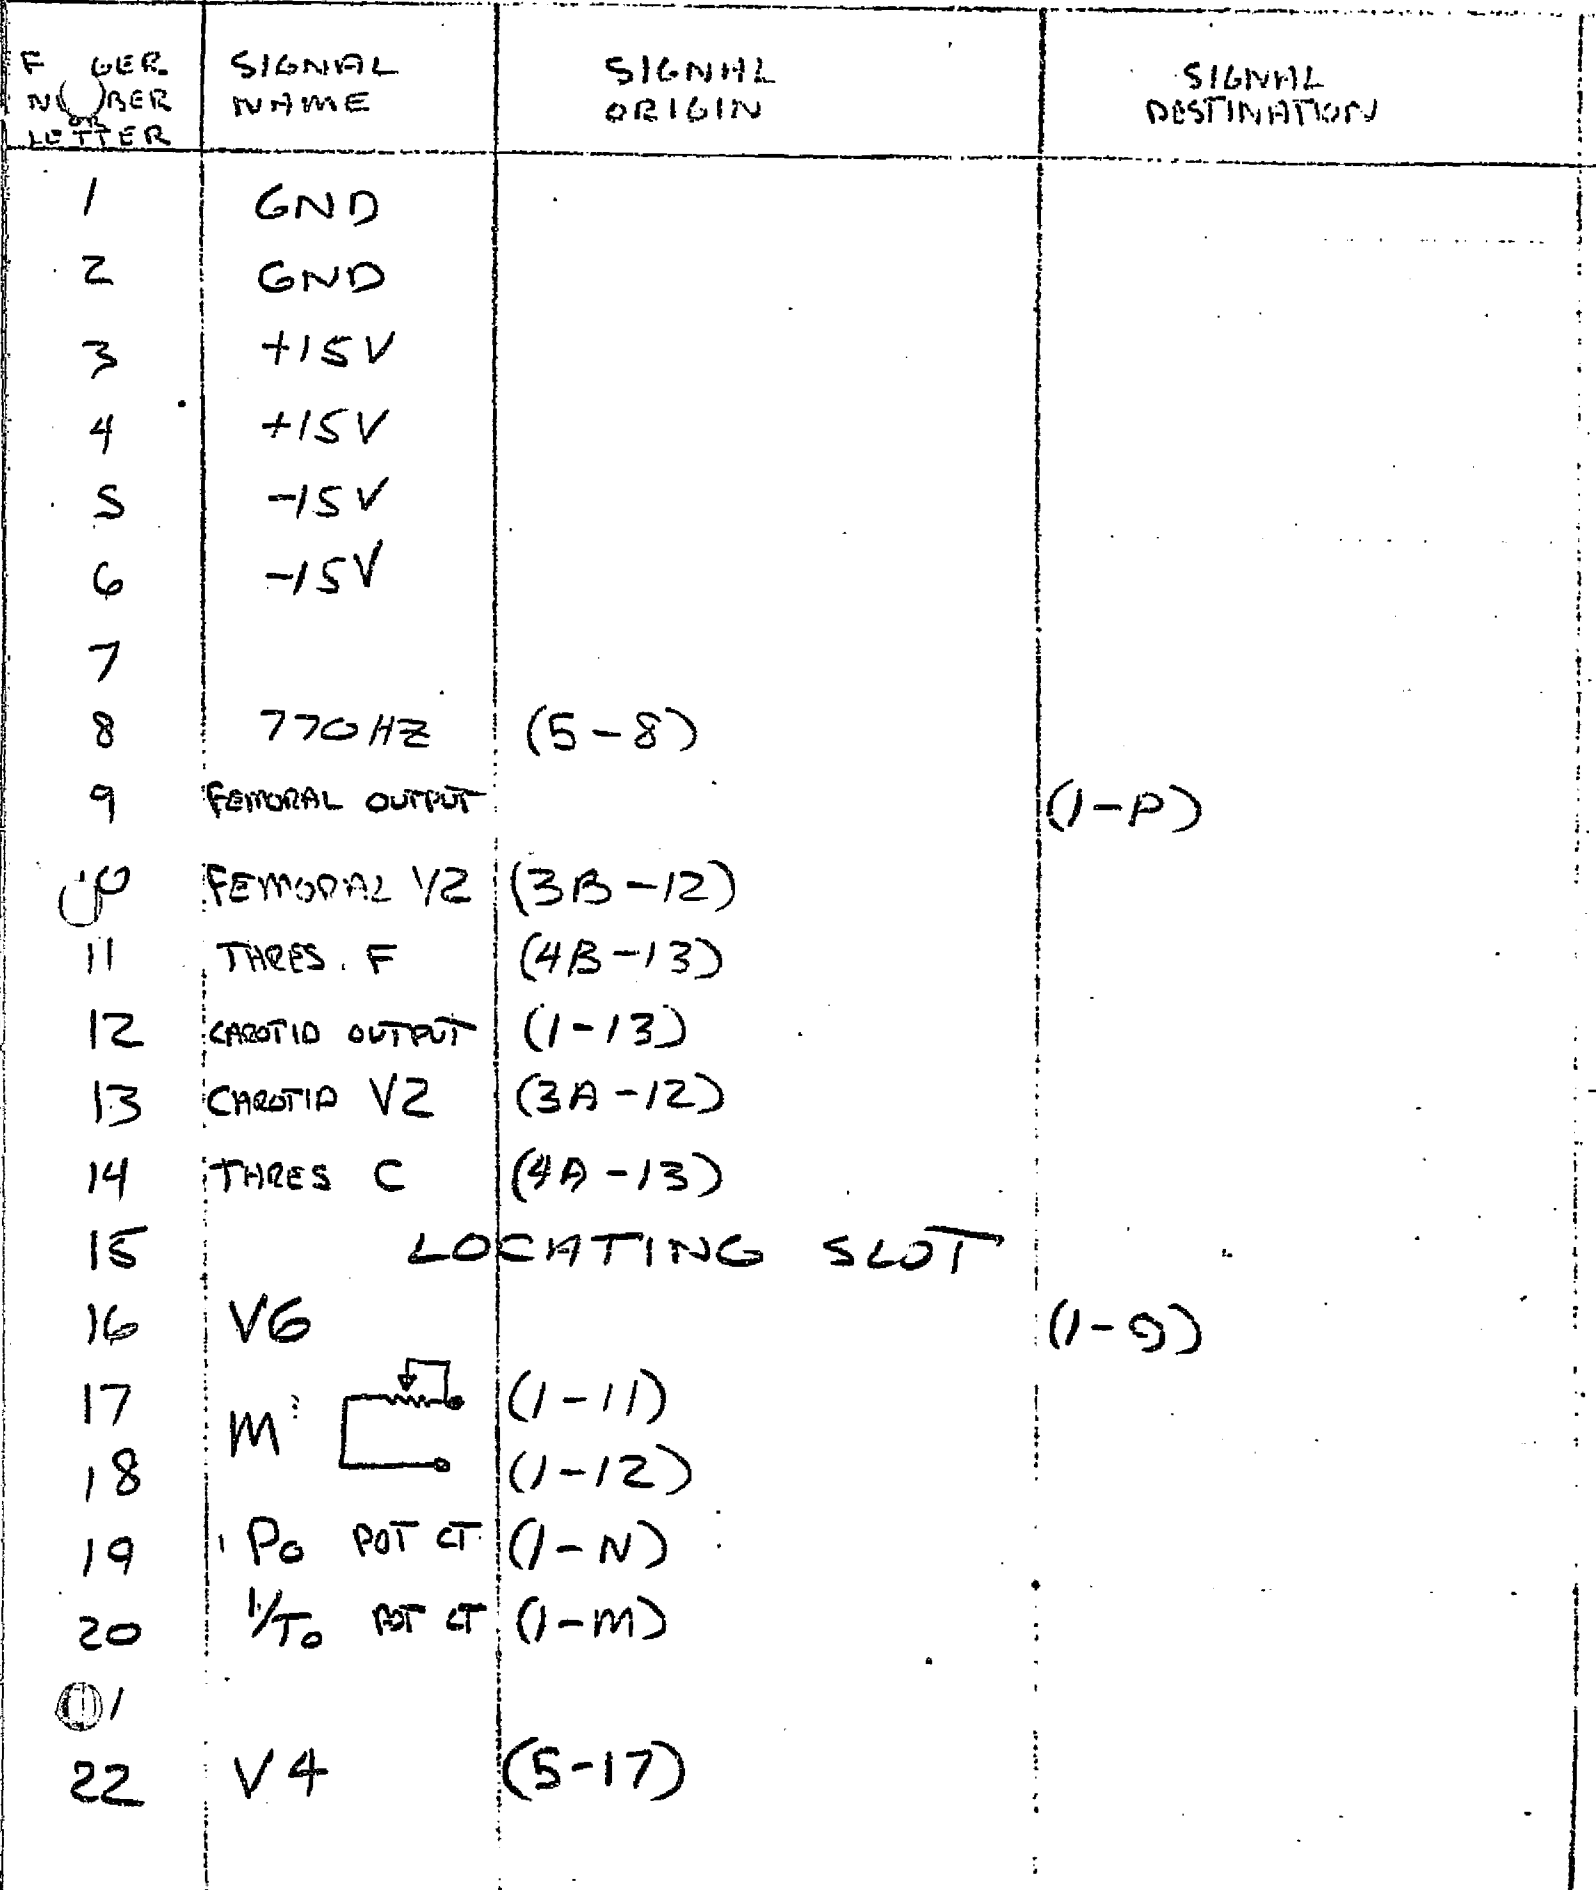 F GER NU BER OR LETTER SIGNAL NAME SIGNAL ORIGIN SIGNAL DESTINATION
1 GND
2 GND
3 +15V
4 +15V
5 -15V
6 -15V
7
8 770HZ (5-8)
9 FEMORAL OUTPUT (1-P)
10 FEMORAL V2 (3B-12)
11 THRES. F (4B-13)
12 CAROTID OUTPUT (1-13)
13 CAROTID V2 (3A-12)
14 THRES C (4A-13)
15 LOCATING SLOT
16 V6
17 M (1-11)
18 (1-12)
19 Po POT CT (1-N)
20 1/To POT CT (1-M)
1
22 V4 (5-17)